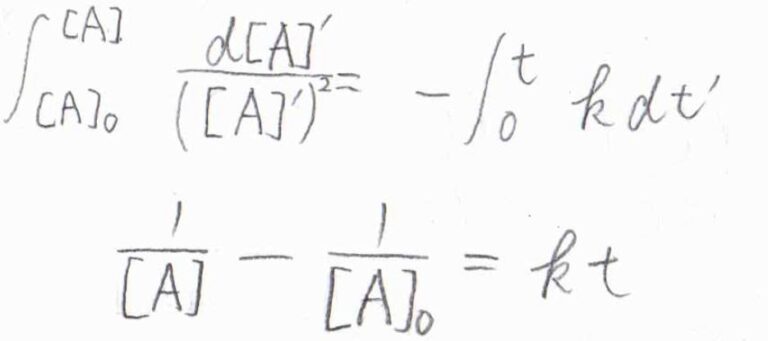 ∫_{[A]₀}^{[A]} d[A]′ / ([A]′)² = − ∫₀ᵗ k dt′
1/[A] − 1/[A]₀ = kt